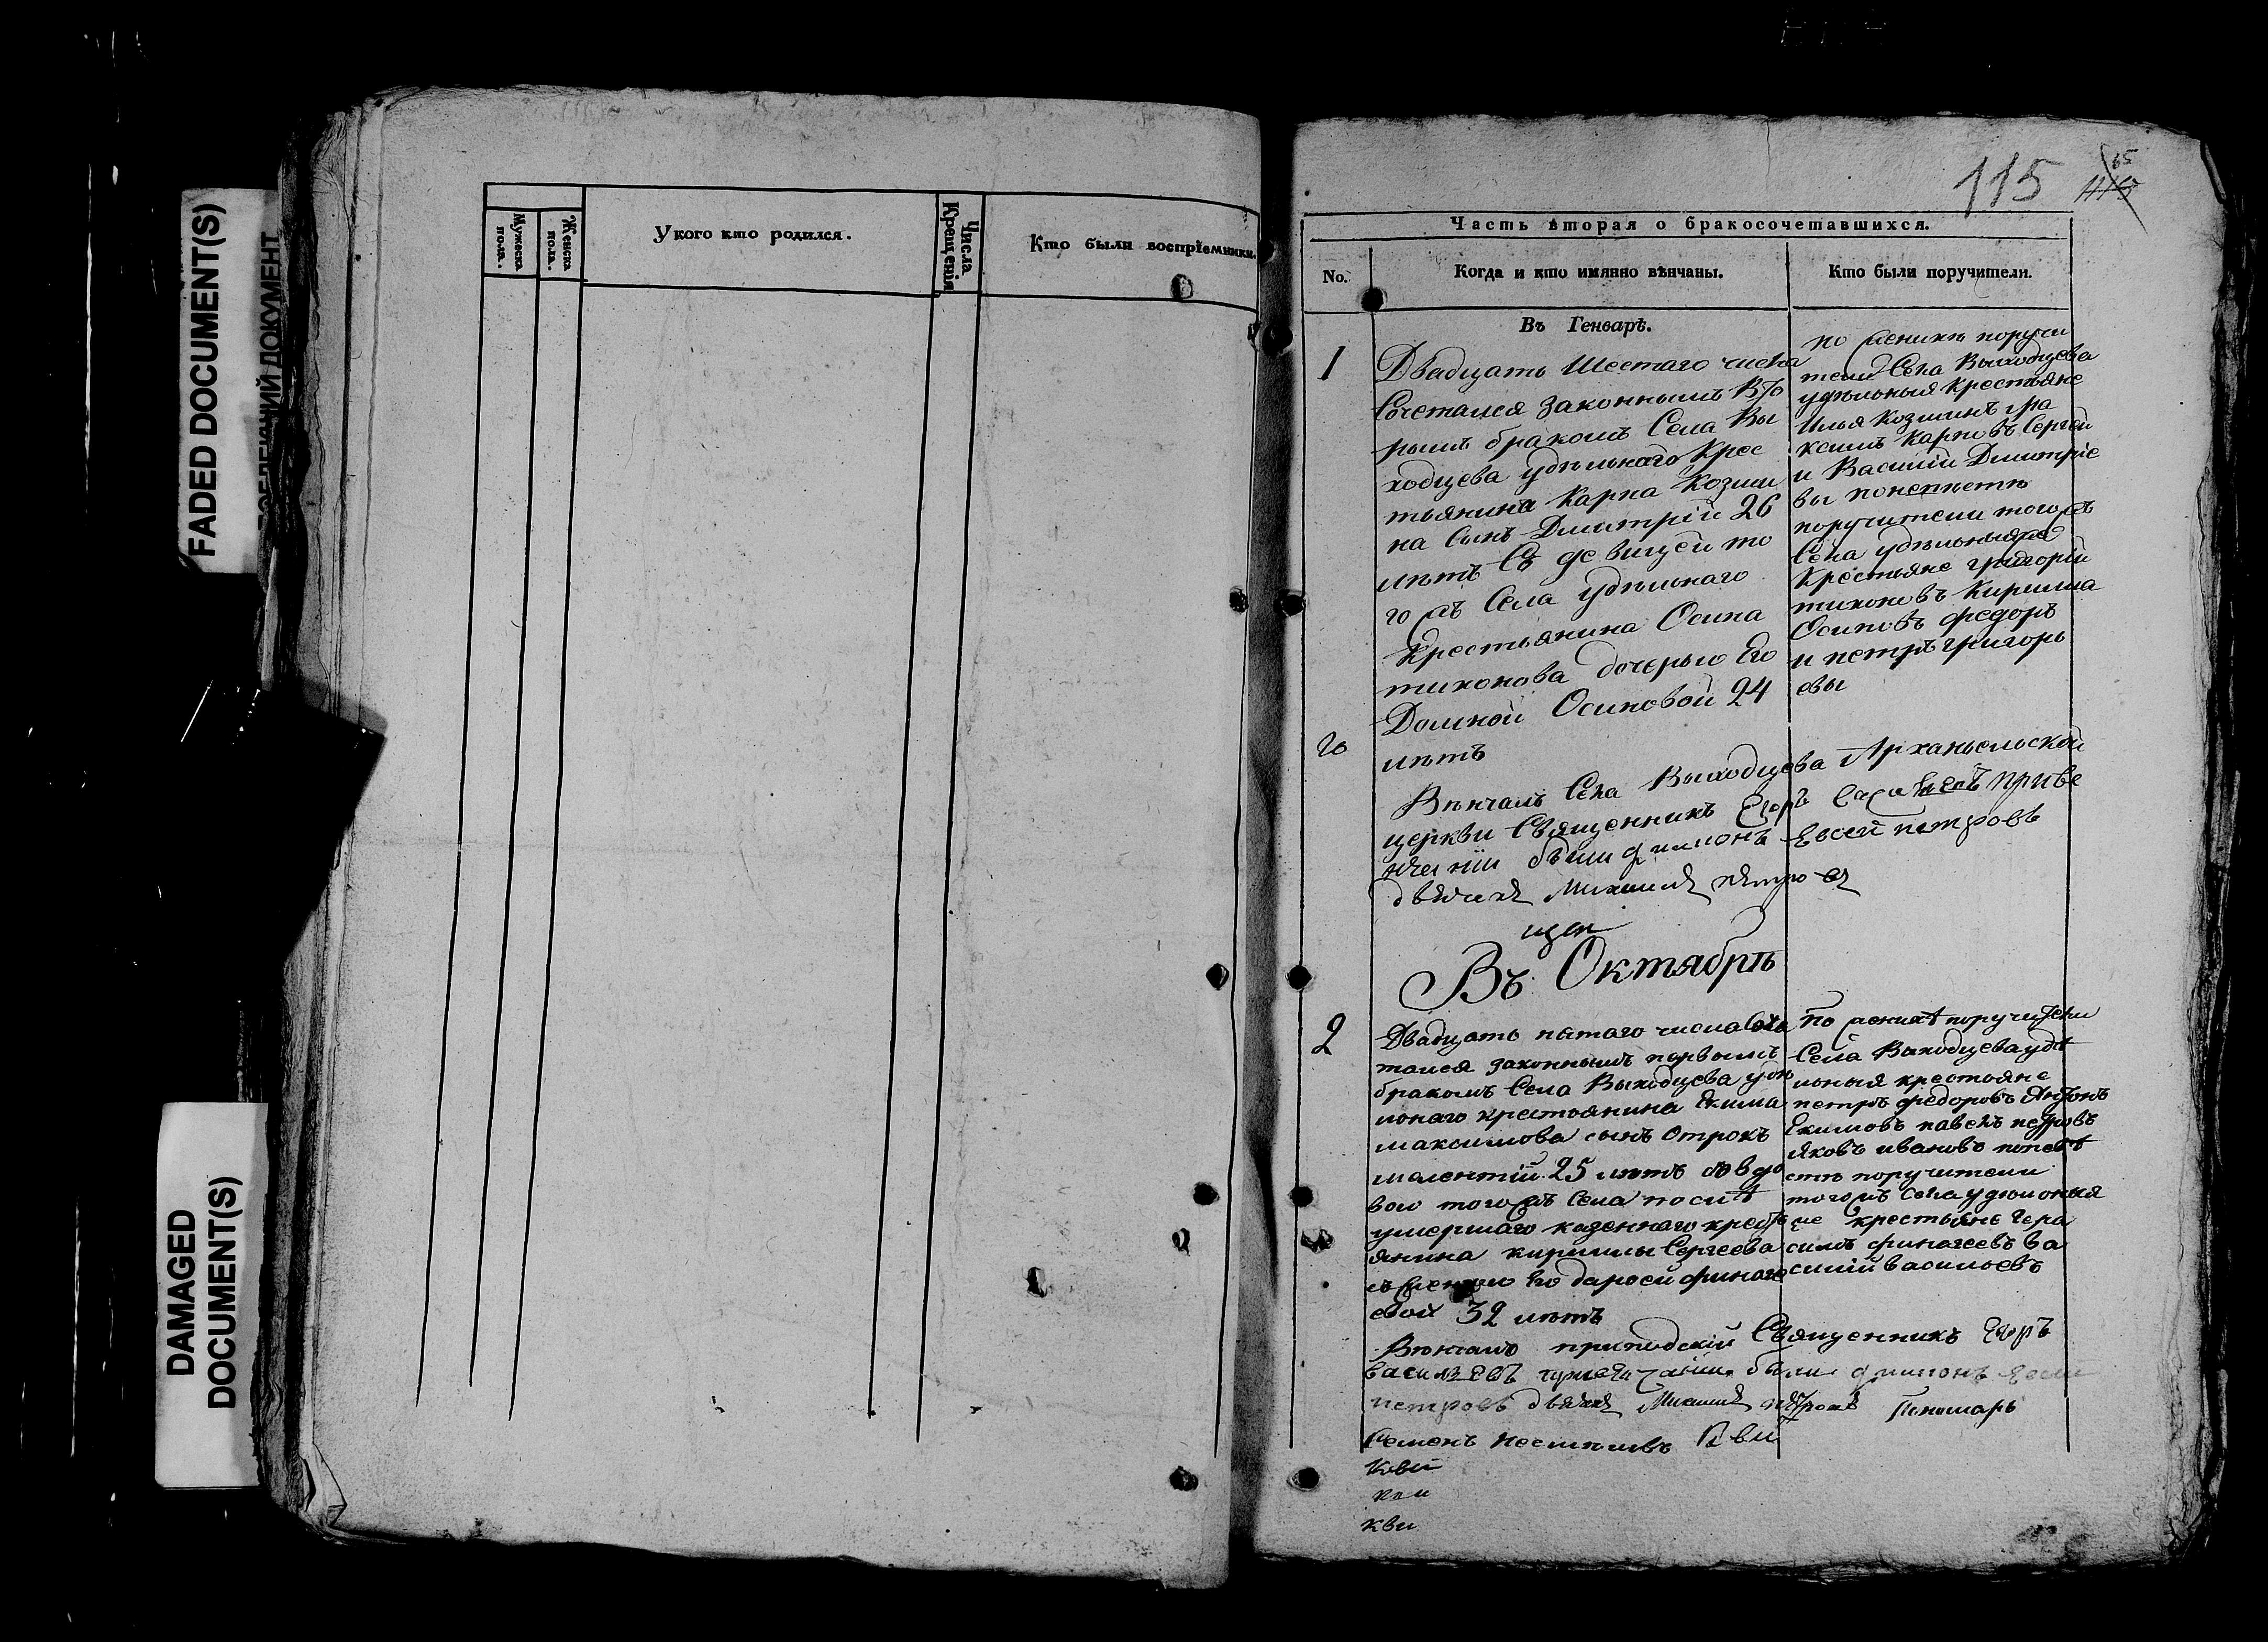 FADED DOCUMENT(S)
DAMAGED
DOCUMENT(S)
Мужеска
пола.
Женска
пола.
У кого кто родился.
Числа
Крещенія
Кто были воспріемники.
115
Часть вторая о бракосочетавшихся.
No.
Когда и кто имянно вѣнчаны.
Кто были поручители.
Въ Генварѣ.
1
Двадцать Шестаго числа
Сочетался законнымъ Вто
рымъ бракомъ Села Вы
ходцева удѣльнаго Крес
тьянина Карпа Козми
на сынъ Дмитрій 26
лѣтъ Съ девицей то
гожъ Села удѣльнаго
Крестьянина Осипа
тихонова дочерью Его
Домной Осиповой 24
лѣтъ
по женихѣ поручи
тели Села Выходцева
удѣльныя Крестьяне
Илья Козминъ
Карповъ Сергѣй
и Василій Дмитріе
вы поневѣстѣ
поручители тогожъ
Села удѣльныя
Крестьяне григорій
тихоновъ Кирилла
Осиповъ федоръ
и петръ григорь
евы
Вѣнчалъ Села Выходцева Архангельской
церкви Священникъ Егоръ приве
нчаніи были филмонъ Евсей петровъ
Михаилъ
Въ Октябрѣ
2
Двадцать пятаго числа Соче
тался законнымъ первымъ
бракомъ Села Выходцева удѣ
льнаго крестьянина Екима
максимова сынъ отрокъ
25 лѣтъ совдо
вою тогожъ Села послѣ
умершаго казеннаго крестъ
янина кирилы Сергеева
женою Его дарьей финоге
евой 32 лѣтъ
По женихѣ поручители
Села Выходцева удѣ
льныя крестьяне
петръ федоровъ Антонъ
Екимовъ павелъ петровъ
яковъ ивановъ поневѣ
стѣ поручители
тогожъ села удельныя
крестьяне Гера
симъ финогеевъ Ва
силій васильевъ
Вѣнчалъ приходскій Священникъ Егоръ
васильевъ были филмонъ Евсей
петровъ Михаилъ Пономарь
Семенъ